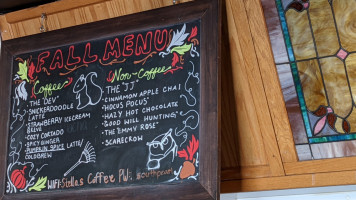 FALL MENU
Coffee
- THE "DEV"
- SNICKERDOODLE LATTE
- STRAWBERRY ICEKREAM
- COZY CORTADO
- SPICY GINGER
- PUMPKIN SPICE LATTE
COLDBREW
Non-Coffee
- THE "JJ"
- CINNAMON APPLE CHAI
- "HOCUS POCUS"
- HAZY HOT CHOCOLATE
- GOOD WILL HUNTING
- THE "EMMY ROSE"
- SCARECROW
WIFI: Stellas Coffee PW: southpearl